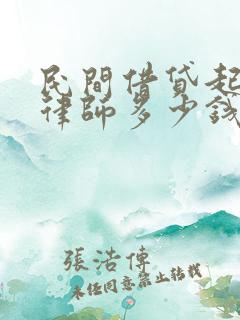 民間借貸起
律師多少錢
張浩傳
未经同意禁止转载